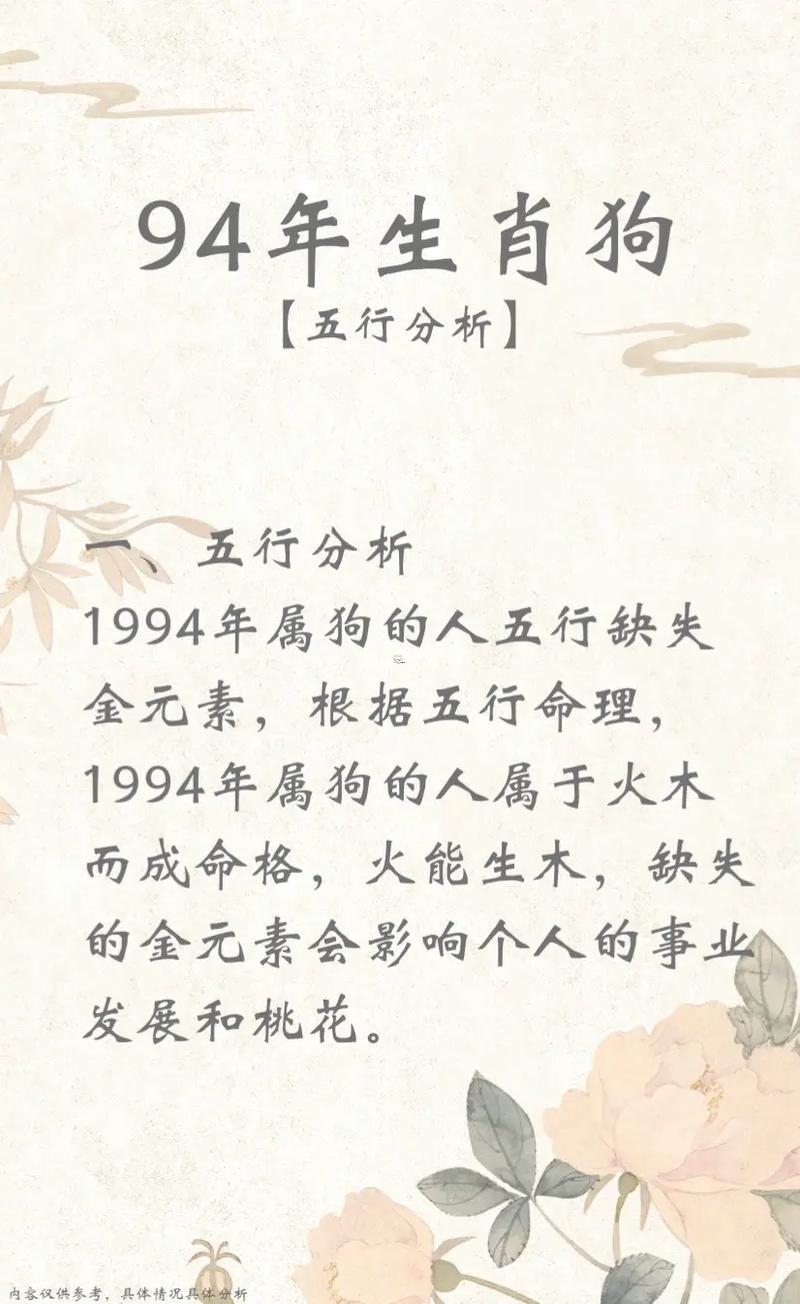 94年生肖狗
【五行分析】
一、五行分析
1994年属狗的人五行缺失
金元素，根据五行命理，
1994年属狗的人属于火木
而成命格，火能生木，缺失
的金元素会影响个人的事业
发展和桃花。
内容仅供参考，具体情况具体分析